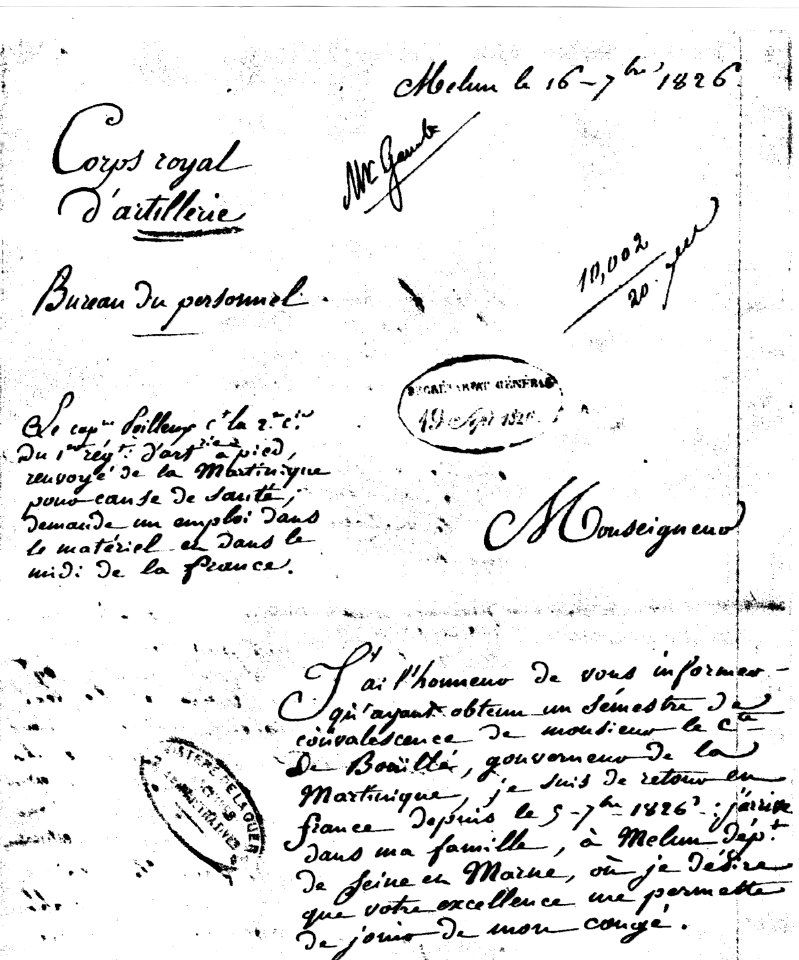 Melun le 16 - 7bre 1826.
Corps royal
d'artillerie
Mr
10,002
20.
Bureau du personnel.
SECRÉTARIAT GÉNÉRAL
19 Sept 1826
Le capne ct la 2.e cie
du 1er régt d'artrie à pied,
renvoyé de la Martinique
pour cause de santé,
demande un emploi dans
le matériel et dans le
midi de la france.
Monseigneur
J'ai l'honneur de vous informer
qu'ayant obtenu un sémestre de
convalescence de monsieur le cte
De Bouillé, gouverneur de la
Martinique, je suis de retour en
france depuis le 5 - 7bre 1826; j'arrive
dans ma famille, à Melun dépt
de Seine et Marne, où je désire
que votre excellence me permette
de jouir de mon congé.
MINISTÈRE DE LA GUERRE
ARCHIVES
ADMINISTRATIVES